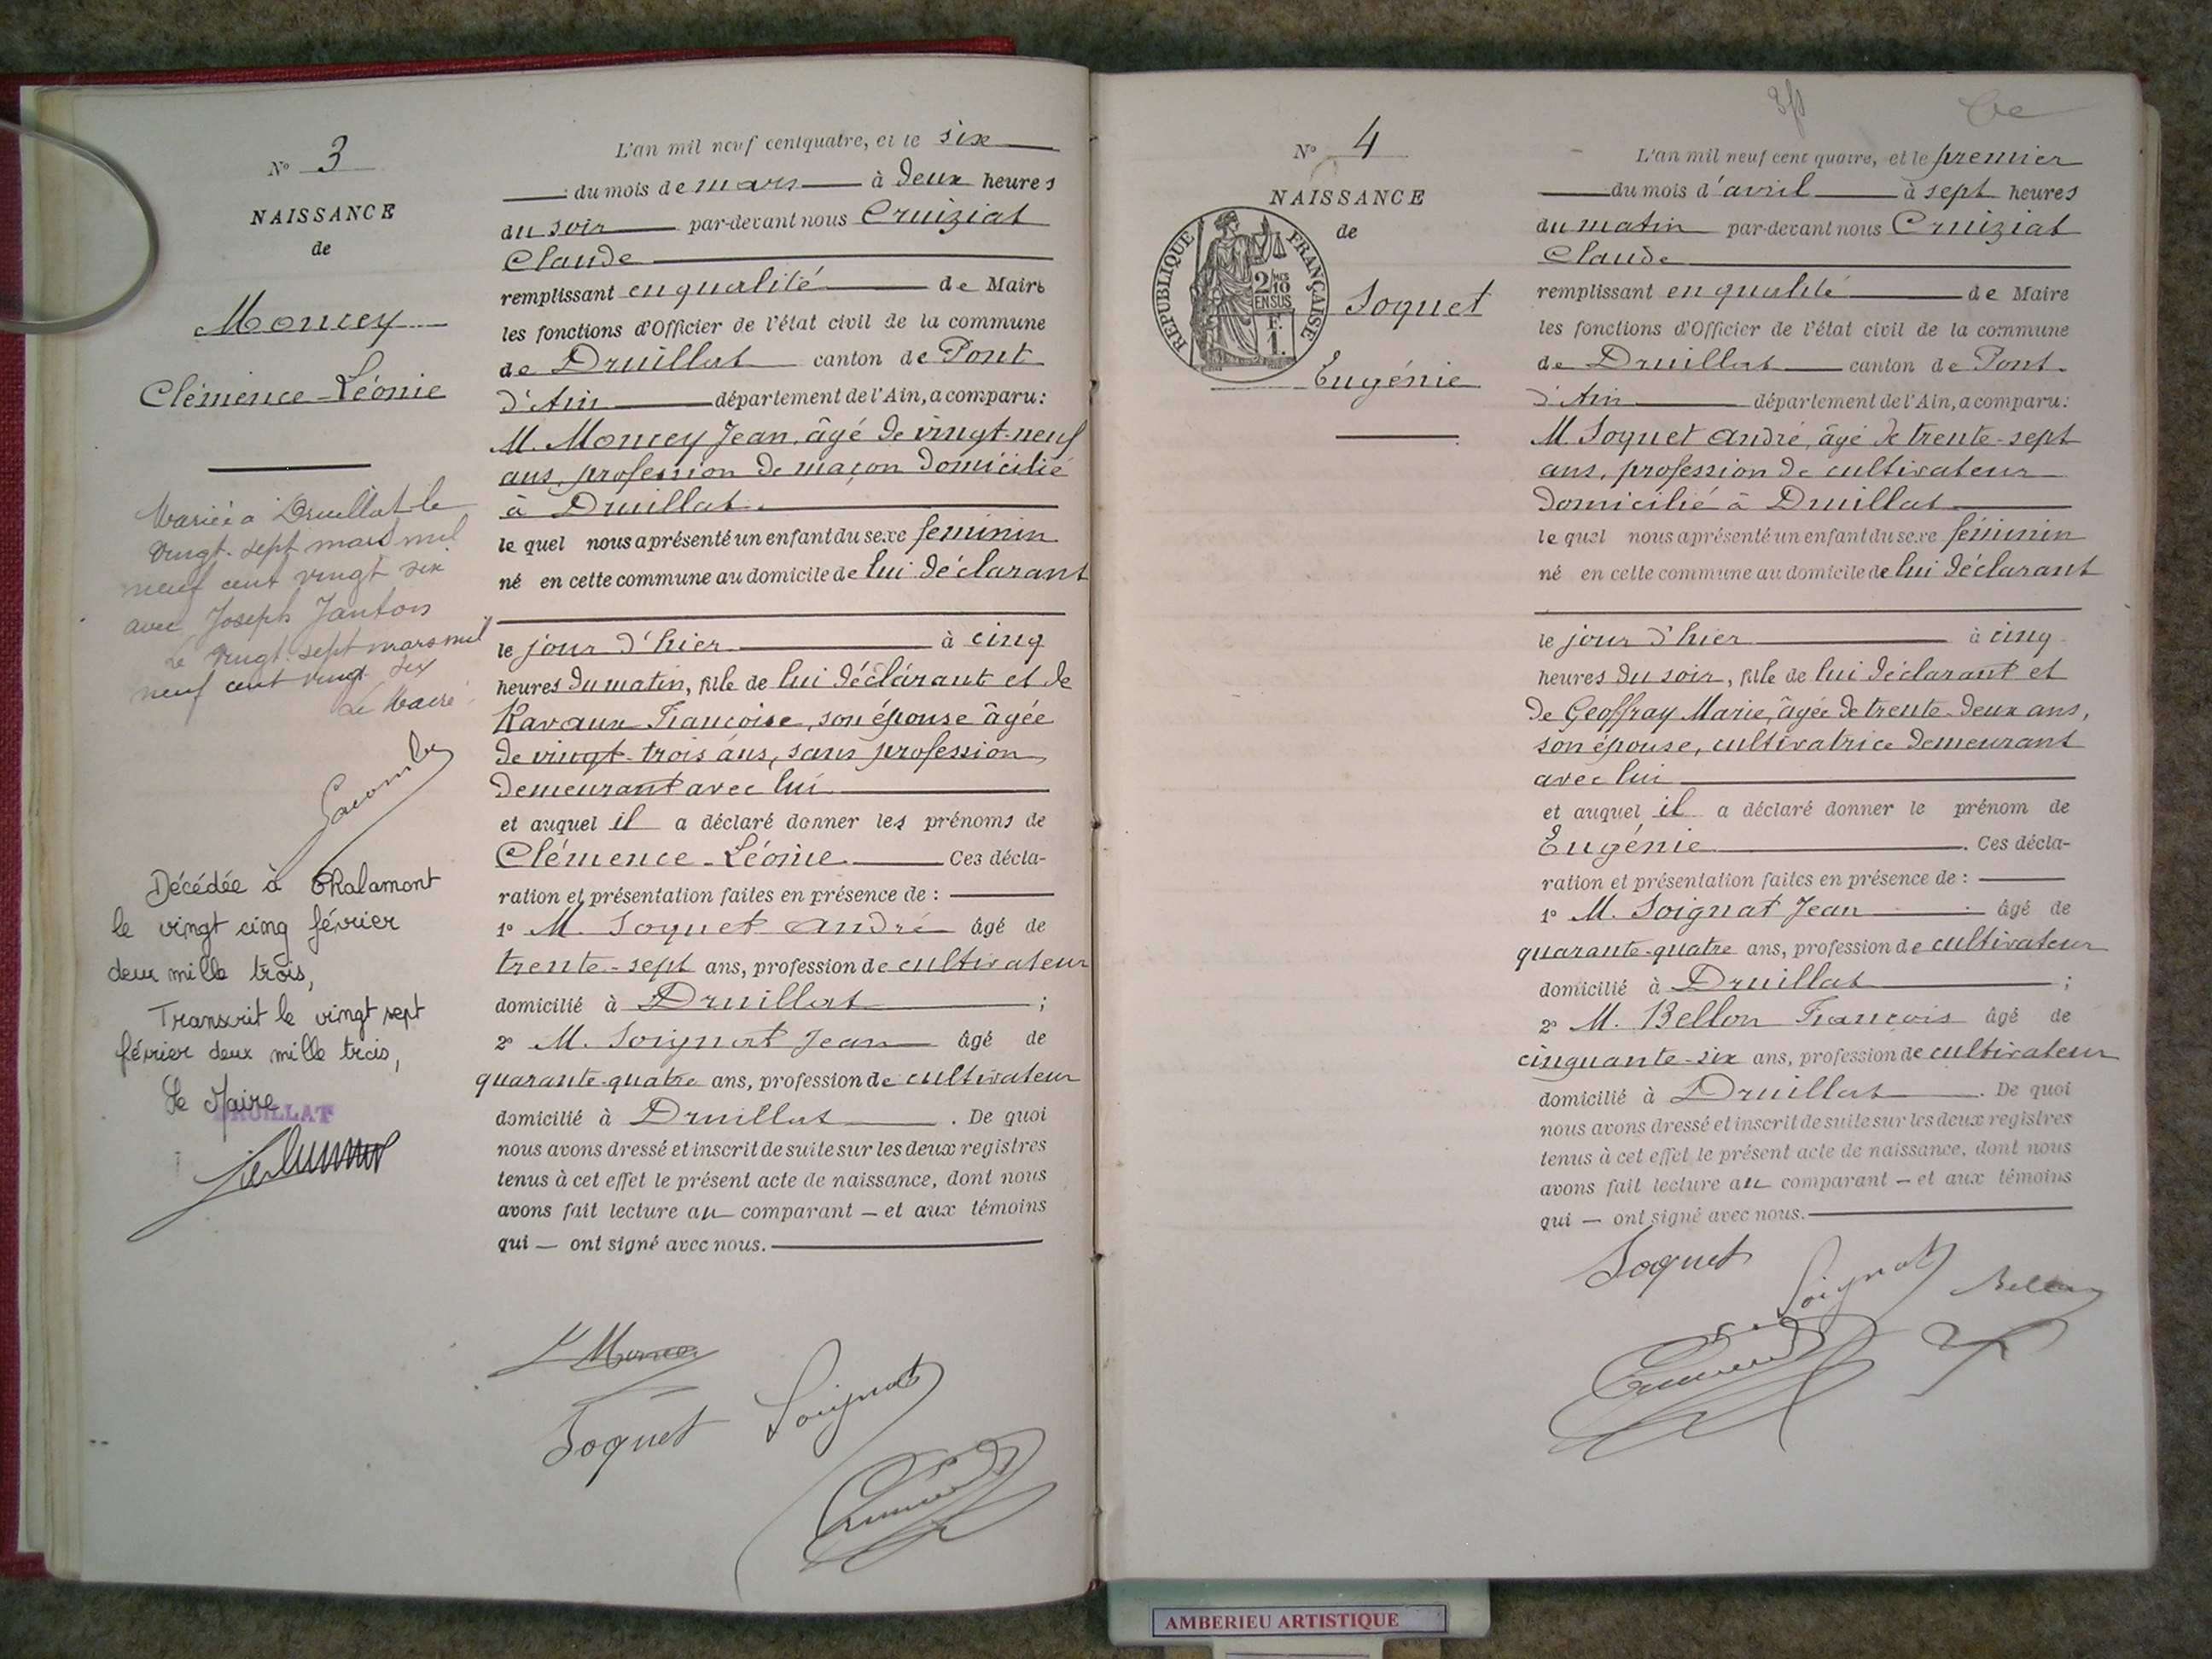 N° 3
NAISSANCE
de
Moncey
Clémence-Léonie
Mariée à Druillat le
vingt-sept mars mil
neuf cent vingt six
avec Joseph Jantons
Le vingt-sept mars mil
neuf cent vingt six
Le Maire
Décédée à Chalamont
le vingt cinq février
deux mille trois,
Transcrit le vingt sept
février deux mille trois,
Le Maire
DRUILLAT
L'an mil neuf cent quatre, et le six
du mois de mars à deux heures
du soir par-devant nous Cruiziat
Claude
remplissant en qualité de Maire
les fonctions d'Officier de l'état civil de la commune
de Druillat canton de Pont
d'Ain département de l'Ain, a comparu:
M. Moncey Jean, âgé de vingt-neuf
ans, profession de maçon domicilié
à Druillat.
le quel nous a présenté un enfant du sexe feminin
né en cette commune au domicile de lui déclarant
le jour d'hier à cinq
heures du matin, fille de lui déclarant et de
Ravaux Françoise, son épouse âgée
de vingt-trois ans, sans profession
demeurant avec lui
et auquel il a déclaré donner les prénoms de
Clémence-Léonie. Ces décla-
ration et présentation faites en présence de :
1° M. Soquet André âgé de
trente-sept ans, profession de cultivateur
domicilié à Druillat ;
2° M. Soignat Jean âgé de
quarante-quatre ans, profession de cultivateur
domicilié à Druillat . De quoi
nous avons dressé et inscrit de suite sur les deux registres
tenus à cet effet le présent acte de naissance, dont nous
avons fait lecture au comparant — et aux témoins
qui — ont signé avec nous.
Moncey
Soquet Soignat
Cruiziat
N° 4
NAISSANCE
de
RÉPUBLIQUE FRANÇAISE
2/10 MES
EN SUS
F.
1.
Soquet
Eugénie
L'an mil neuf cent quatre, et le premier
du mois d'avril à sept heures
du matin par-devant nous Cruiziat
Claude
remplissant en qualité de Maire
les fonctions d'Officier de l'état civil de la commune
de Druillat canton de Pont.
d'Ain département de l'Ain, a comparu:
M. Soquet André, âgé de trente-sept
ans, profession de cultivateur
domicilié à Druillat
le quel nous a présenté un enfant du sexe féminin
né en cette commune au domicile de lui déclarant
le jour d'hier à cinq
heures du soir, fille de lui déclarant et
de Geoffray Marie, âgée de trente-deux ans,
son épouse, cultivatrice demeurant
avec lui
et auquel il a déclaré donner le prénom de
Eugénie . Ces décla-
ration et présentation faites en présence de :
1° M. Soignat Jean âgé de
quarante-quatre ans, profession de cultivateur
domicilié à Druillat ;
2° M. Bellon François âgé de
cinquante-six ans, profession de cultivateur
domicilié à Druillat . De quoi
nous avons dressé et inscrit de suite sur les deux registres
tenus à cet effet le présent acte de naissance, dont nous
avons fait lecture au comparant — et aux témoins
qui — ont signé avec nous.
Soquet Soignat Bellon
Cruiziat
AMBERIEU ARTISTIQUE